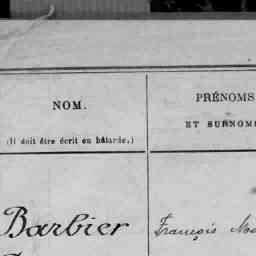 NOM.
(Il doit être écrit en bâtarde.)
PRÉNOMS
ET SURNOM
Barbier
François